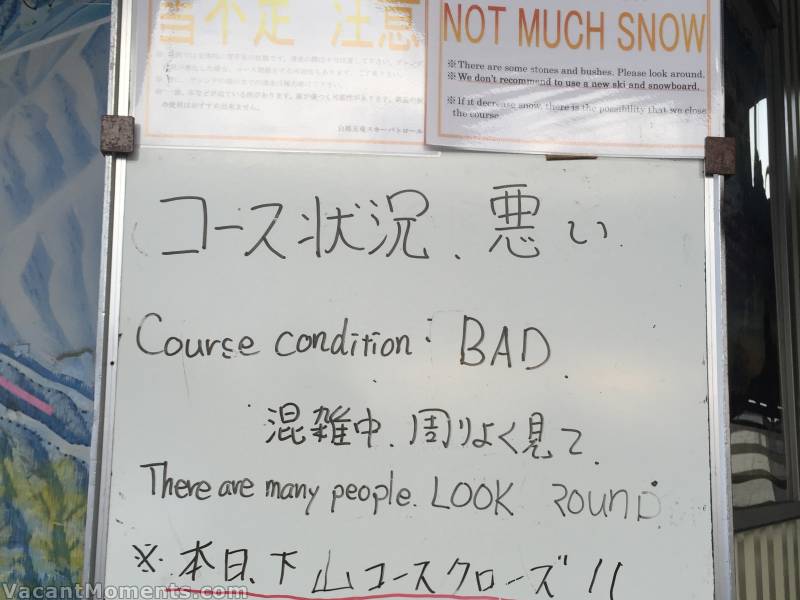 不足 注意
NOT MUCH SNOW
※There are some stones and bushes. Please look around.
※We don't recommend to use a new ski and snowboard.
※If it decrease snow, there is the possibility that we close
the course.
白馬五竜スキーパトロール
コース状況、悪い.
Course condition: BAD.
混雑中、周りよく見て.
There are many people. LOOK ROUND.
※本日、下山コースクローズ!!
VacantMoments.com